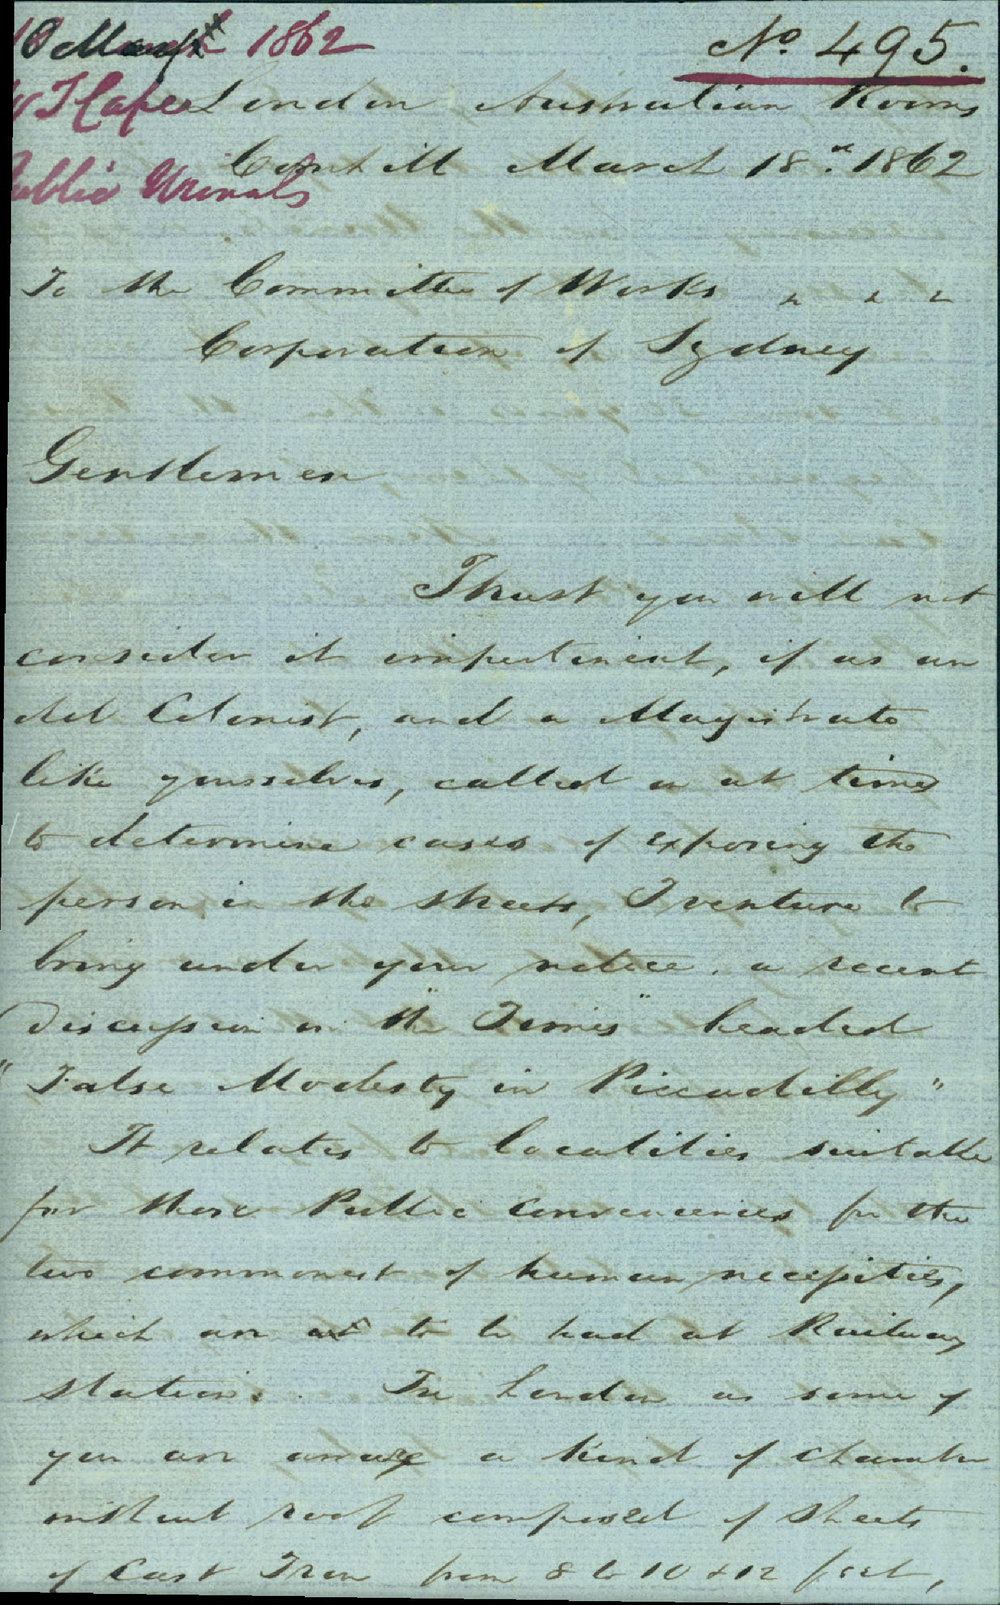 10 May 1862
No 495.
W T Cape
London Australian Rooms
Public Urinals
Cornhill March 18th. 1862
To the Committee of Works
Corporation of Sydney
Gentlemen
I trust you will not
consider it impertinent, if as an
old Colonist, and a Magistrate
like yourselves, called on at times
to determine cases of exposing the
person in the streets, I venture to
bring under your notice a recent
discussion in the "Times" headed
"False Modesty in Piccadilly"
It relates to localities suitable
for those Public Conveniences for the
two commonest of human necessities,
which are to be had at Railway
Stations. In London as some of
you are aware a kind of chamber
without roof composed of sheets
of Cast Iron from 8 to 10 & 12 feet,